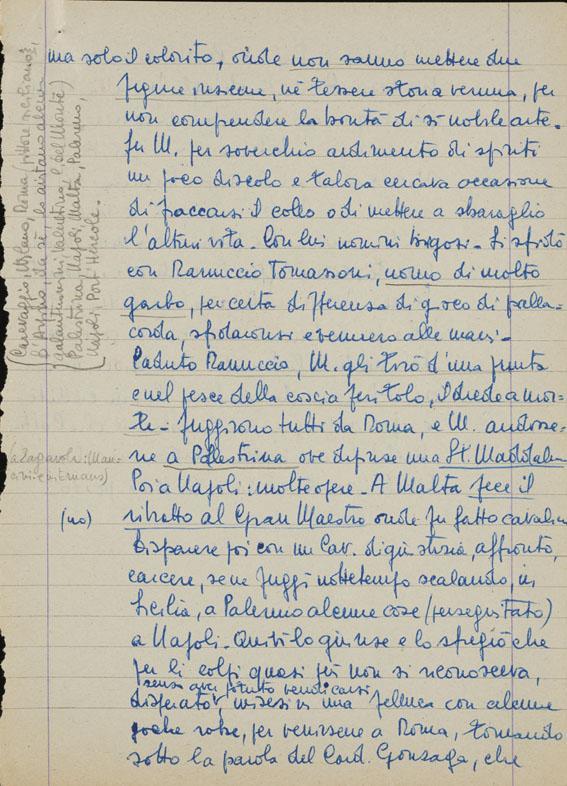 ma solo il colorito, onde non sanno mettere due
figure insieme, nè tessere storia veruna, per
non comprendere la bontà di sì nobile arte.
Fu M. per soverchio ardimento di spiriti
un poco discolo e talora cercava occasione
di fiaccarsi il collo o di mettere a sbaraglio
l'altrui vita. Con lui uomini brigosi. Si sfidò
con Ranuccio Tomassoni, uomo di molto
garbo, per certa differenza di gioco di palla-
corda, sfidaronsi e vennero alle mani.
Caduto Ranuccio, M. gli tirò d'una punta
e nel pesce della coscia feritolo, il diede a mor-
te. Fuggirono tutti da Roma, e M. andosse-
ne a Pellestrina ove dipinse una St. Maddalena
Poi a Napoli: molte opere. A Malta fece il
ritratto al Gran Maestro onde fu fatto cavaliere
Disparere poi con un Cav. di giustizia, affronto,
carcere, se ne fuggì nottetempo scalando, in
Sicilia, a Palermo alcune cose (perseguitato)
a Napoli. Quivi lo giunse e lo sfregiò che
per li colpi quasi più non si riconosceva,
senza aver potuto vendicarsi
disperato misesi in una felluca con alcune
poche robe, per venirsene a Roma, tornando
sotto la parola del Card. Gonzaga, che
Caravaggio, Milano, Roma, pittore
D'Arpino, da sè, lo aiutano alcuni
galantuomini, Valentino, C. del Monte)
Palestrina, Napoli, Malta, Palermo,
Napoli, Port'Hercole.
a Zagarolo: (Man-
cini: in Emaus)
(no)